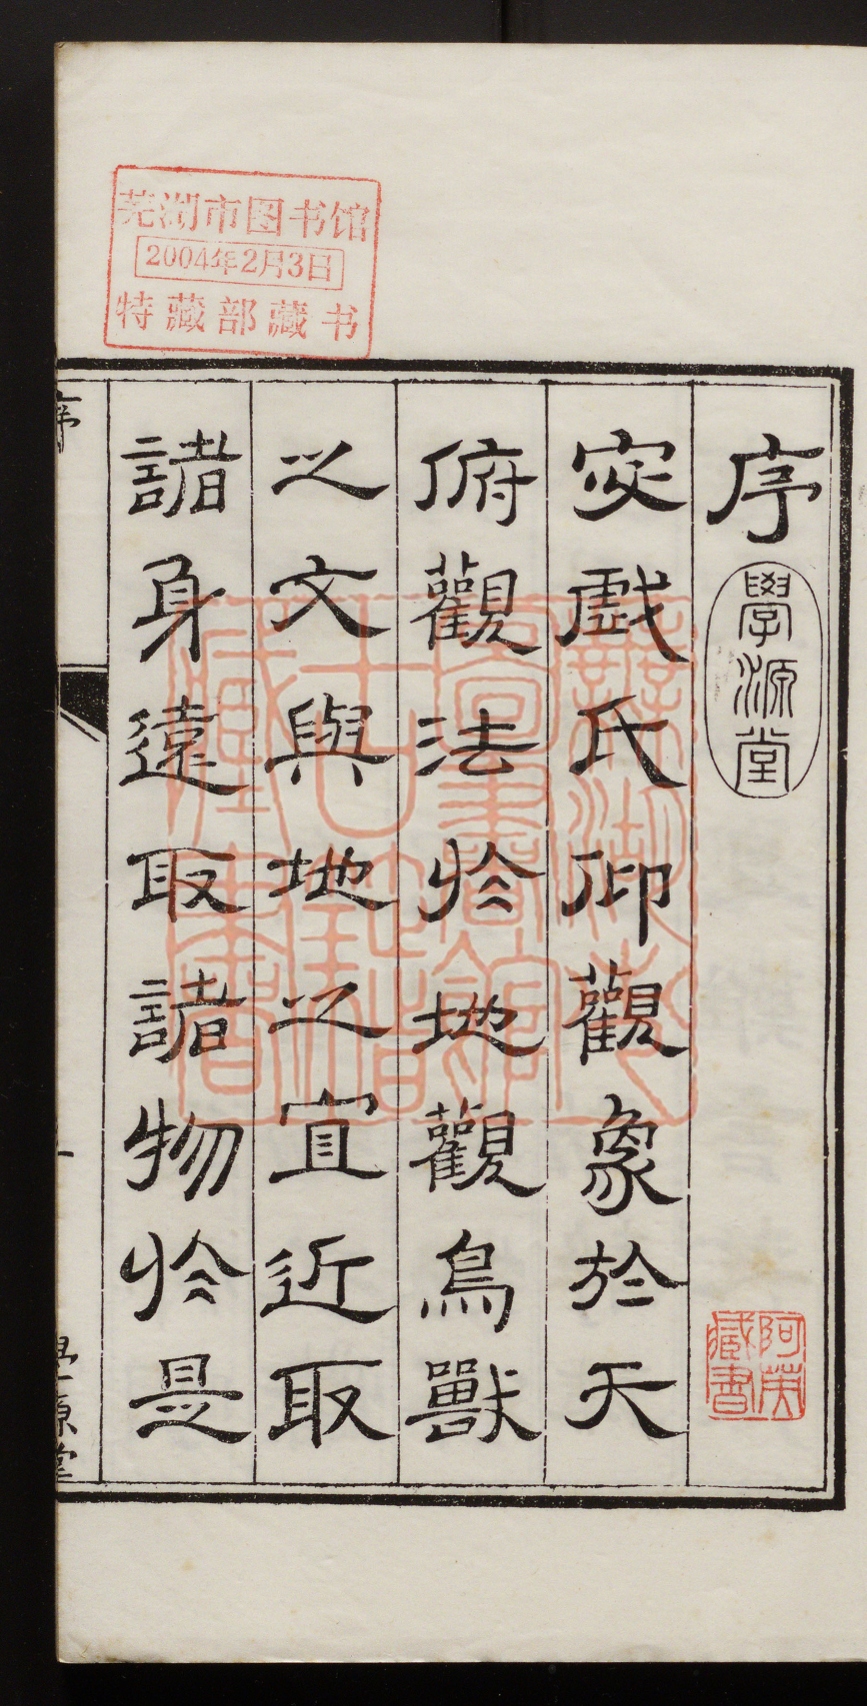 芜湖市图书馆
2004年2月3日
特藏部藏书
序
學源堂
宓戲氏仰觀象於天
俯觀法於地觀鳥獸
之文與地之宜近取
諸身遠取諸物於是
序
學源堂
蕪湖市
圖書館
古籍
藏書
阿英
藏書